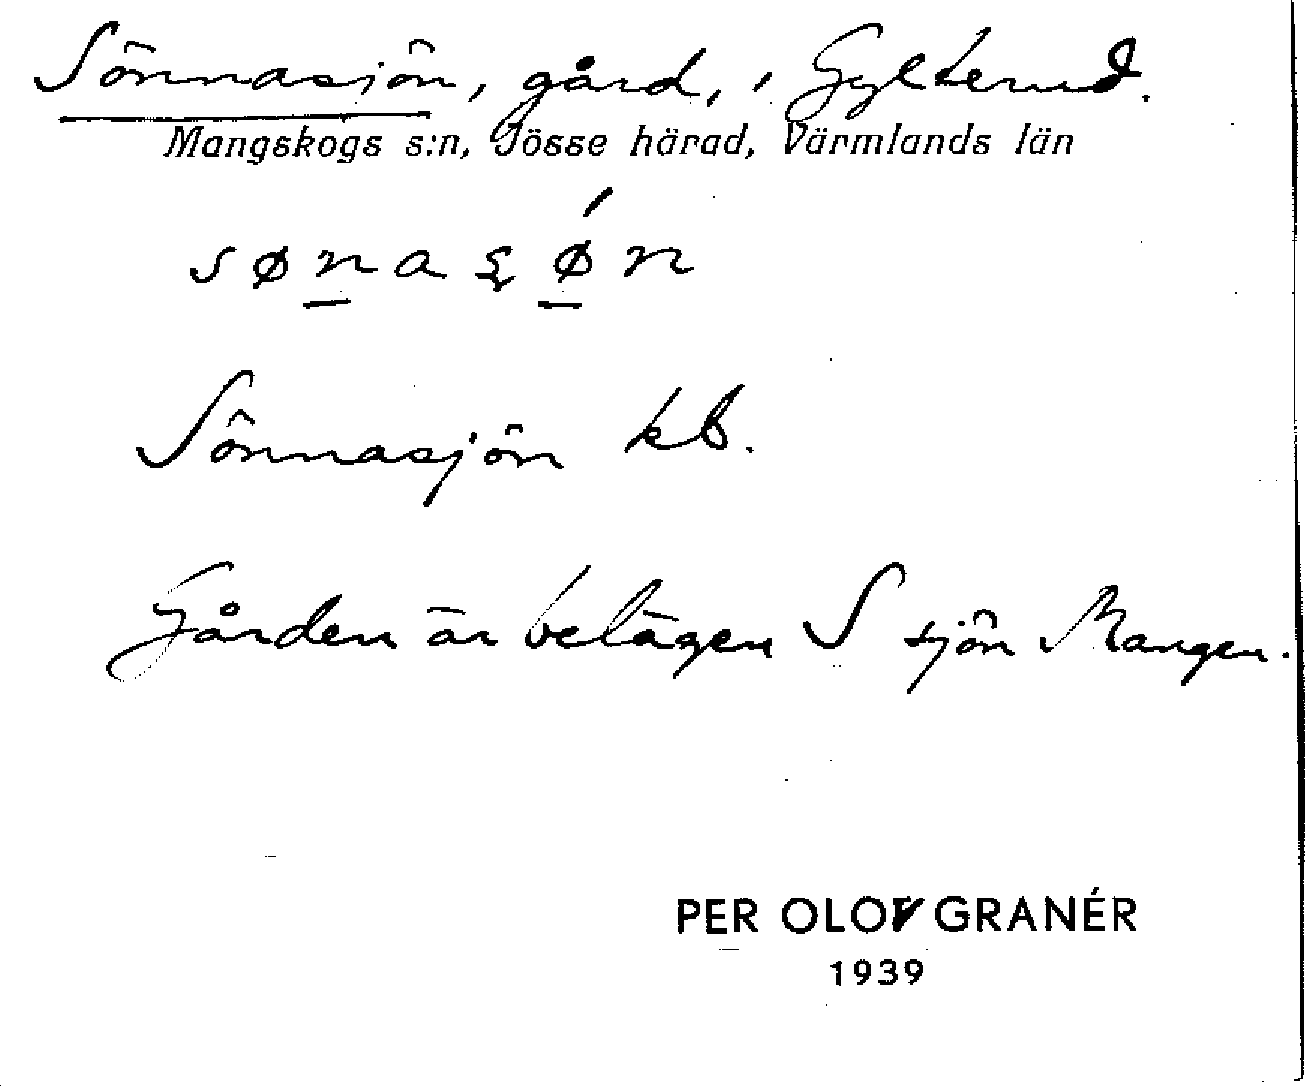 Sönnasjön, gård, i Gylterud.
Mangskogs s:n, Jösse härad, Värmlands län
Sönnasjön kb.
Gården är belägen S sjön Mangen.
PER OLOV GRANÉR
1939